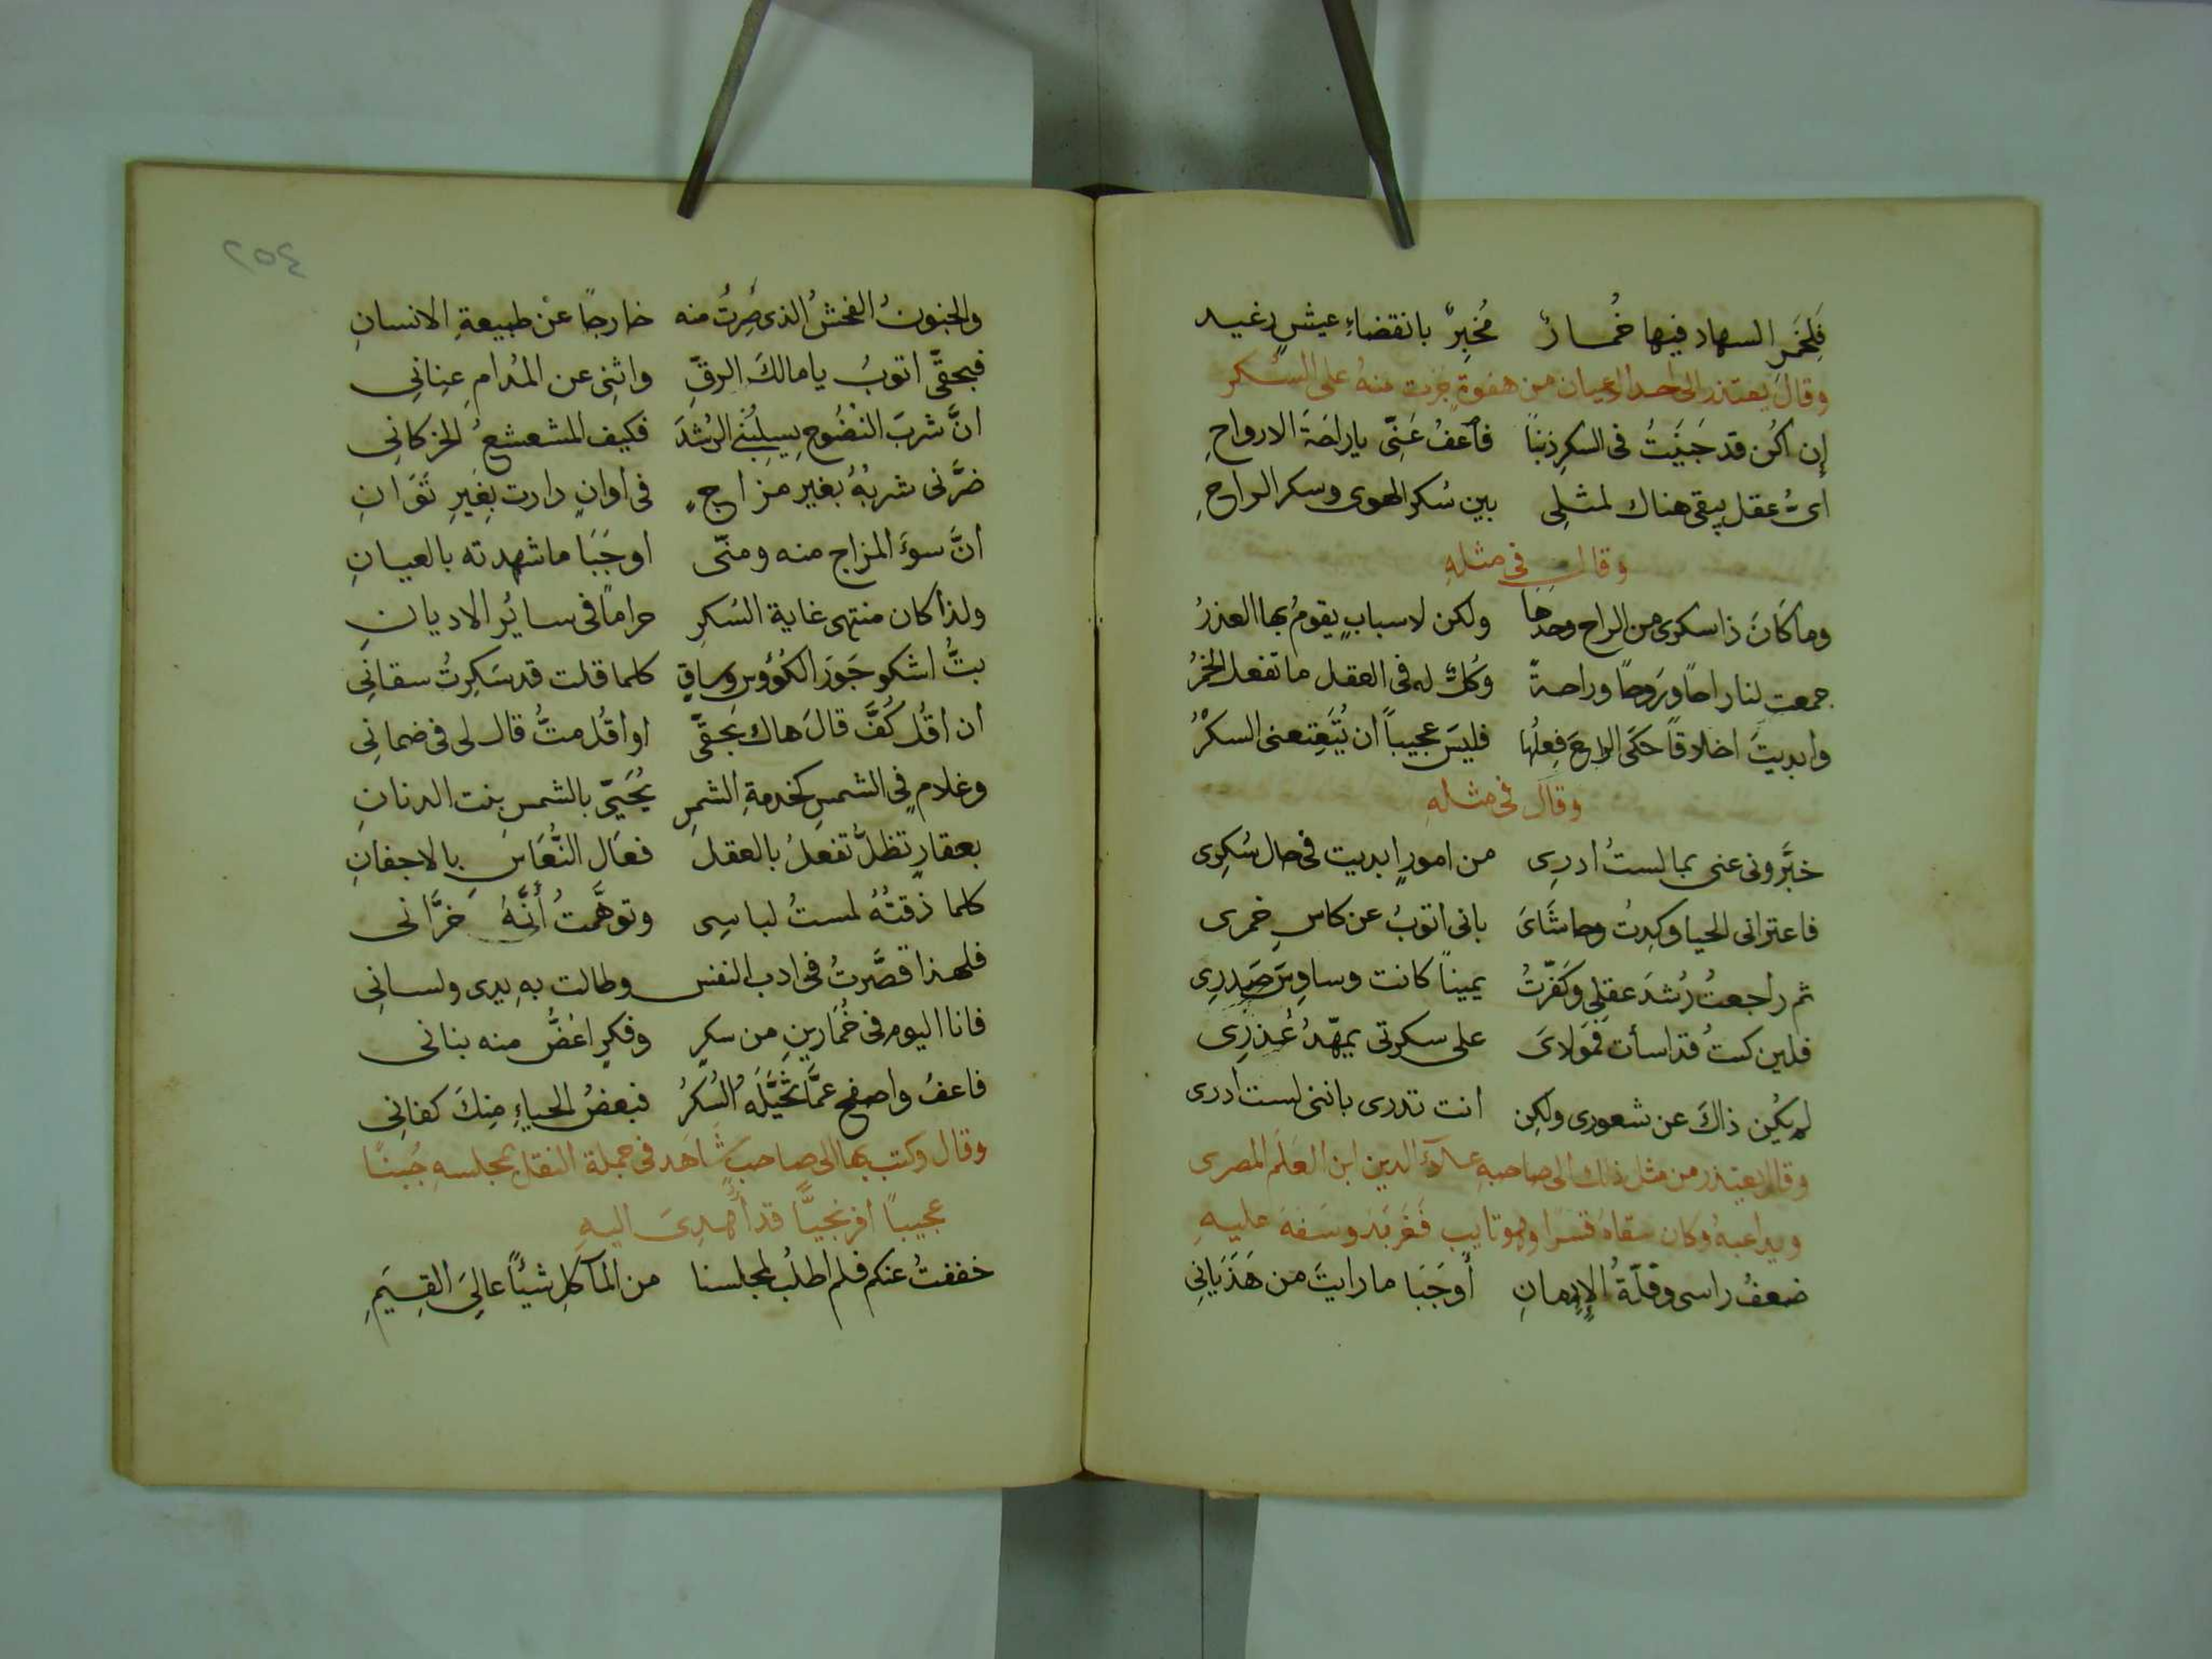 فَلِخَمرِ السهاد فيها خُمارٌ مُخبِرٌ بانقضاءِ عيشٍ رغيد
وقال يعتذر الى احد الاعيان من هفوةٍ جَرت منهُ على السُكر
إن اكُن قد جَنَيتُ فى السكرِ ذنبًا فاَعفُ عَنّى ياراحَةَ الارواحِ
اىُّ عقل يبقى هناك لمثلِى بين سُكرِ الهوى وسكر الراحِ
وقال فى مثلهِ
وما كَانَ ذا سكرى من الراح وحدَهَا ولكن لاسبابٍ يقومُ بها العذرُ
جمعت لنا راحًا ورَوحًا وراحةً وَكُلٌّ له فى العقل ما تفعل الخمرُ
وابديتَ اخلاقًا حكَى الراحَ فِعلُها فليسَ عجيباً ان يُتَعتِعنى السكْرُ
وقال فى مثلهِ
خبَّرونى عنى بما لستُ ادرِى من امورٍ ابديت فى حال سُكرِى
فاعترانى الحيا وكِدتُ وحاشَاىَ بانى اتوبُ عن كاسِ خمرى
ثم راجعتُ رُشدَ عقلِى وكفّرتُ يمينًا كانت وساوِسَ صَدرِى
فلين كنتُ قد اسأت فَمَولاىَ على سكرتى يمهّدُ عُذرِى
لم يكُن ذاكَ عن شعورى ولكِن انت تدرى باننى لست ادرى
وقال يعتذر من مثل ذلك الى صاحبهِ علآءَ الدين ابن العَلَم المصرى
ويداعبهُ وكان سقاهُ قسرًا وهو تايب فَعَربَد وسَفهَ عليهِ
ضعفُ راسى وقلّةُ الإِيمانِ أوجَبَا ما رايتَ من هَذَيَانِى
٢٥٤
والجنونُ الفحشُ الذى صِرتُ منه خارجًا عن طبيعةِ الانسانِ
فبحقّى اتوبُ يا مالكَ الرقِّ واثنِى عن المُدامِ عِنانِى
انَّ شربَ النضُوحِ يسلِبُنى الرُشدَ فكيف المشعشعُ الخركانِى
ضرَّنى شربهُ بغير مزاجٍ فى اوانٍ دارت بِغَيرِ تَوَانِ
انَّ سوءَ المزاج منه ومنّى اوجَبَا ما شهدته بالعيانِ
ولذا كان منتهى غاية السُكرِ حرامًا فى سايُرِ الاديانِ
بتُّ اشكو جَورَ الكُؤوسِ وساقٍ كلما قلت قد سَكِرتُ سقانِى
ان اقُل كُفَّ قالَ هاك بحقّى او اقُل متُّ قال لى فى ضمانِى
وغلامٍ فى الشمسِ كخدمةِ الشمسِ يُحَيّى بالشمسِ بنت الدنانِ
بعقارٍ تظلُّ تفعلُ بالعقل فعَال النُّعَاسِ بالاجفانِ
كلما ذقتُهُ لمستُ لباسِى وتوهَّمتُ أنَّهُ خرَّانى
فلهذا قصَّرتُ فى ادب النفس وطالت بهِ يدى ولسانِى
فانا اليوم فى خُمارينِ من سكرٍ وفكرٍ اعَضُّ منه بنانى
فاعفُ واصفح عمَّا تخيَّلَهُ السُكرُ فبعضُ الحياءِ مِنكَ كفانِى
وقال وكتب بها الى صاحبٍ شَاهَد فى جملة النقل بمجلسهِ جُبنًا
عجيبًا افرنجيًّا قد أُهدِىَ اليهِ
خففتُ عنكم فلم اطلُب لمجلسنا من المآكلِ شيئًا عالِىَ القِيَمِ